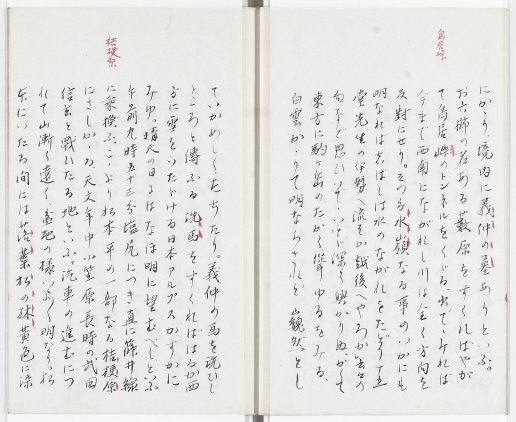 鳥居峠
にかゝり境内に義仲の墓ありといふ。
お六櫛の名ある藪原をすぐればやが
て鳥居峠のトンネルをくぐる、出でゝみれば
今まで西南にながれし川は全く方向を
反対にせり。そのかみ水嶺なる事のいかにも
明なればなほしは水のながれをたどり
堂先生の伊勢へ流すか越後へやるか
句など思ひいでゝいとゞ深く興がりぬ、かくて
東方に駒ヶ岳のたかく聳ゆるをみる、
白雲かゝりて明ならざれど巍然とし
桔梗原
ていかめしくたちたり。義仲の馬を洗ひし
ところと傳ふる洗馬をすぐればはるか西
方に雪をいたゞける日本アルプスかすかに
みゆ。晴天の日には なほ明に望むべしといふ
午前九時五十三分塩尻につき直に篠井線
に乗換ふ、こゝより松本平の一部なる桔梗原
にさしかゝる、天文年中小笠原長時の武田
信玄と戦ひたる地といふ、汽車の進むにつ
れて山漸く遠く盆地の様いよゝ明なり、松
本にいたる間には落葉松の林黄色に染